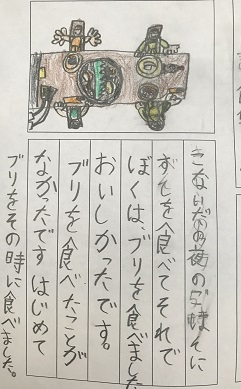 こないだの夜の空様そに
ずしを食べてそれで
ぼくは、ブリを食べました
おいしかったです。
ブリを食べたことが
なかったですはじめて
ブリをその時に食べました。